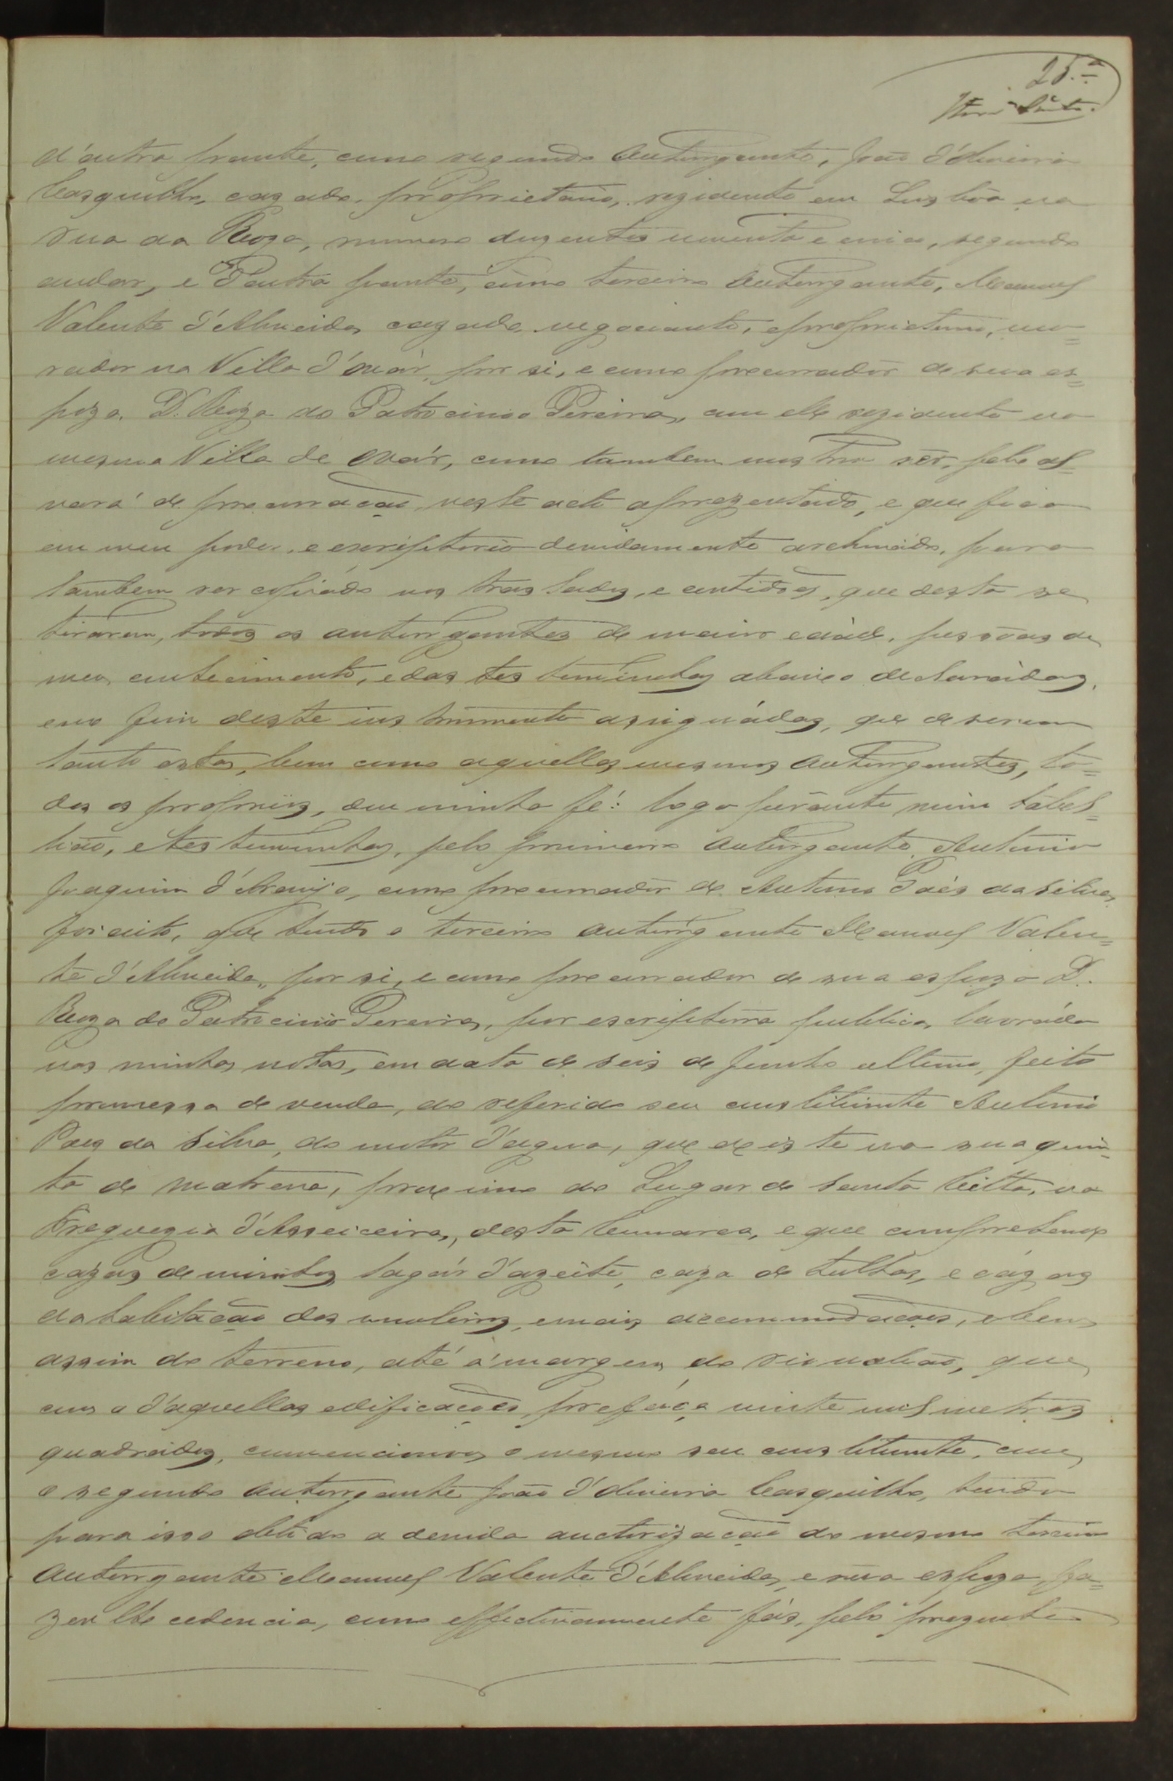 25.ª
d'outra parte, como segundo Autorgante, João d'Oliveira
Casquilho, cazado, proprietario, rezidente em Lisbôa na
rua da Roza, numero duzentos noventa e cinco, segundo
andar, e d'outra parte, como terceiro Autorgante, Manuel
Valente d'Almeida, cazado, negociante, e proprietario, mo=
rador na Villa d'Ovár, por si, e como procurador de sua es=
poza D. Roza do Patrocinio Pereira, com elle rezidente na
mesma Villa de Ovár, como tambem mostrou ser, pelo al=
vará de procuração neste acto aprezentado, e que fica
em meu poder e escriptorio devidamente archivado, para
tambem ser copiado nos traslados, e certidões, que desta se
tirarem, todos os autorgantes de maior edade, pessôas de
meu conhecimento, e das testemunhas abaixo declaradas,
e no fim deste instrumento assignádas, que de serem
tanto estas, bem como aquelles mesmos Autorgantes, to=
dos os proprios, dou minha fé: logo perante mim tabel=
lião, e testemunhas, pelo primeiro Autorgante Antonio
Joaquim d'Araujo, como procurador de Antonio Paes da Silva,
foi dito, que tendo o terceiro autorgante Manuel Valen=
te d'Almeida, por si, e como procurador de sua espoza D.
Roza do Patrocinio Pereira, por escriptura publica, lavrada
nas minhas notas, em data de seis de Junho ultimo, feito
promessa de venda, ao referido seu constituinte Antonio
Paes da Silva, do motor d'agua, que existe na sua quin=
ta de Matrena, proximo do Lugar de Santa Citta, na
Freguezia d'Asseiceira, desta Comarca, e que comprehende
cazas de moinhos, lagár d'azeite, caza de tulhas, e cázas
da habitação dos moleiros, e mais accommodações, e bem
assim do terreno, até á margem do rio Nabão, que
com o d'aquellas edificações, prefáça vinte mil metros
quadrados, convencionou o mesmo seu constituinte, com
o segundo Autorgante João d'Oliveira Casquilho, tendo
para isso obtido a devida auctorização do mesmo terceiro
Autorgante Manuel Valente d'Almeida, e sua espoza fa=
zer lhe cedencia, como effectivamente fáz, pelo prezente